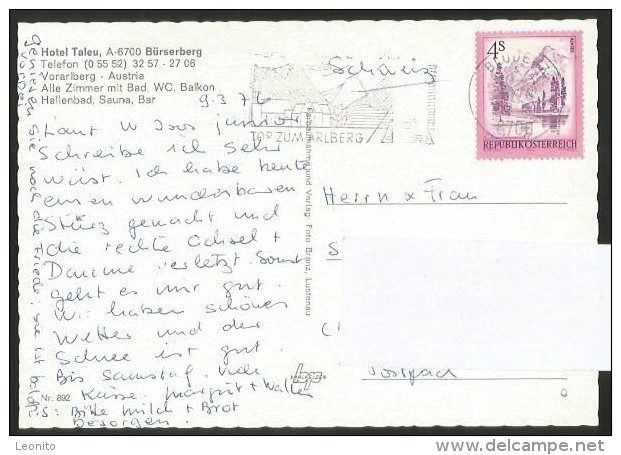 Hotel Taleu, A-6700 Bürserberg
Telefon (0 55 52) 32 57 - 27 06
Vorarlberg - Austria
Alle Zimmer mit Bad, WC, Balkon
Hallenbad, Sauna, Bar
9.3.76
Laut W Joos junior
Schreibe ich sehr
wüst. Ich habe heute
einen wunderbaren
Sturz gemacht und
die rechte Achsel +
Daume verletzt. Sonst
geht es mir gut.
Wir haben schönes
Wetter und der
Schnee ist gut.
Bis Samstag. Viele
Küsse. Margrit + Walter
P.S: Bitte Milch + Brot
besorgen.
Geniessen Sie noch die Friede: sie ist bald
vorbei
Nr. 892
Farbaufnahme und Verlag: Foto Branz, Lustenau
Schweiz
TOR ZUM ARLBERG
BLUDENZ
6700
4S
REPUBLIK ÖSTERREICH
Herrn + Frau
S
C
Postfach
Leonito
www.delcampe.net